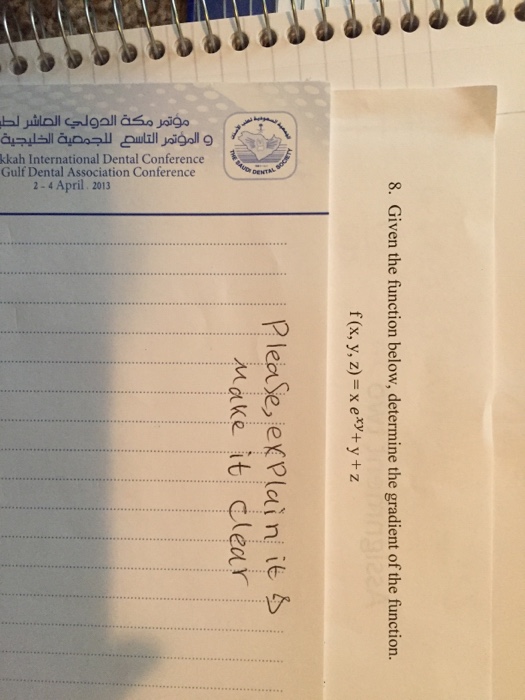 8. Given the function below, determine the gradient of the function.
f (x, y, z) = x e^xy + y + z
Please, explain it &
make it clear
مؤتمر مكة الدولي العاشر لط
و المؤتمر التاسع للجمعية الخليجية
kkah International Dental Conference
Gulf Dental Association Conference
2 - 4 April. 2013
THE SAUDI DENTAL SOCIETY